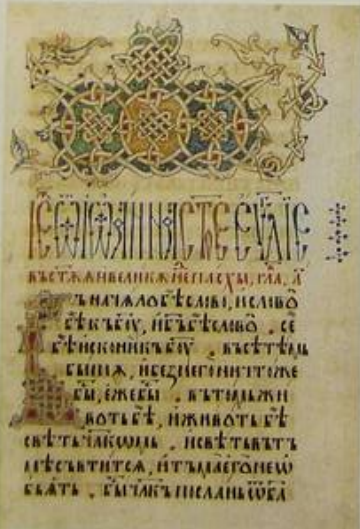 въ ст҃ѫѫ и великѫѫ не пасхы, гла, а҃
ъ начѧло бѣ слово, и слово
бѣ къ б҃ꙋ, и б҃ъ бѣ слово . се
бѣ искони къ б҃ꙋ . въсѣ тѣмь
бышѧ, и без него ничтоже
бы, еже бы . въ томь жи
вотъ бѣ, и животъ бѣ
свѣтъ чл҃кѡмь . и свѣтъ въ тъ
мѣ свѣтитсѧ, и тъма его не ѡ
бѧтъ . бы чл҃къ посланъ ѿ б҃а